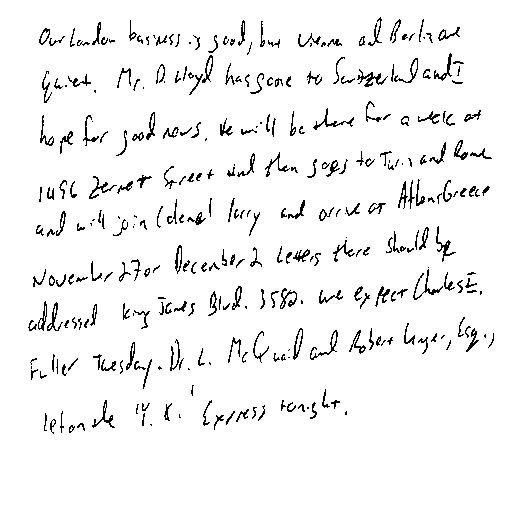 Our London business is good, but Vienna and Berlin are
quiet. Mr. D. Lloyd has gone to Switzerland and I
hope for good news. He will be there for a week at
1496 Zermott Street and then goes to Turin and Rome
and will join Colonel Parry and arrive at Athens Greece
November 27 or December 2. Letters there should be
addressed King James Blvd. 3580. We expect Charles E.
Fuller Tuesday. Dr. L. McQuaid and Robert Unger, Esq.,
left on the "Y. X." Express tonight.